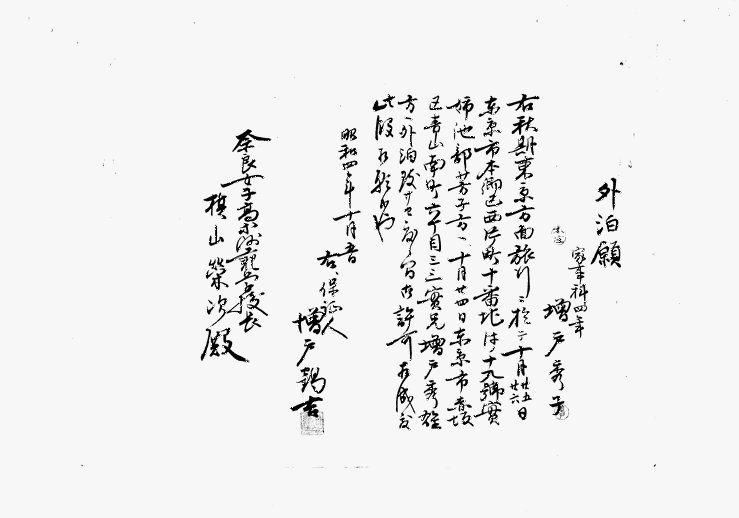 外泊願
家事科四年
増戸秀芳
右秋期東京方面旅行ニ於テ十月廿五日廿六
東京市本郷区西片町十番地は十九號實
姉池部芳子方へ、十月廿四日東京市赤坂
区青山南町六丁目三三實兄増戸秀雄
方へ外泊致サセ度候間御許可相成度
此段相願候也
昭和四年十月 日
右、保証人
増戸鶴吉
奈良女子高等師範学校長
槇山榮次殿